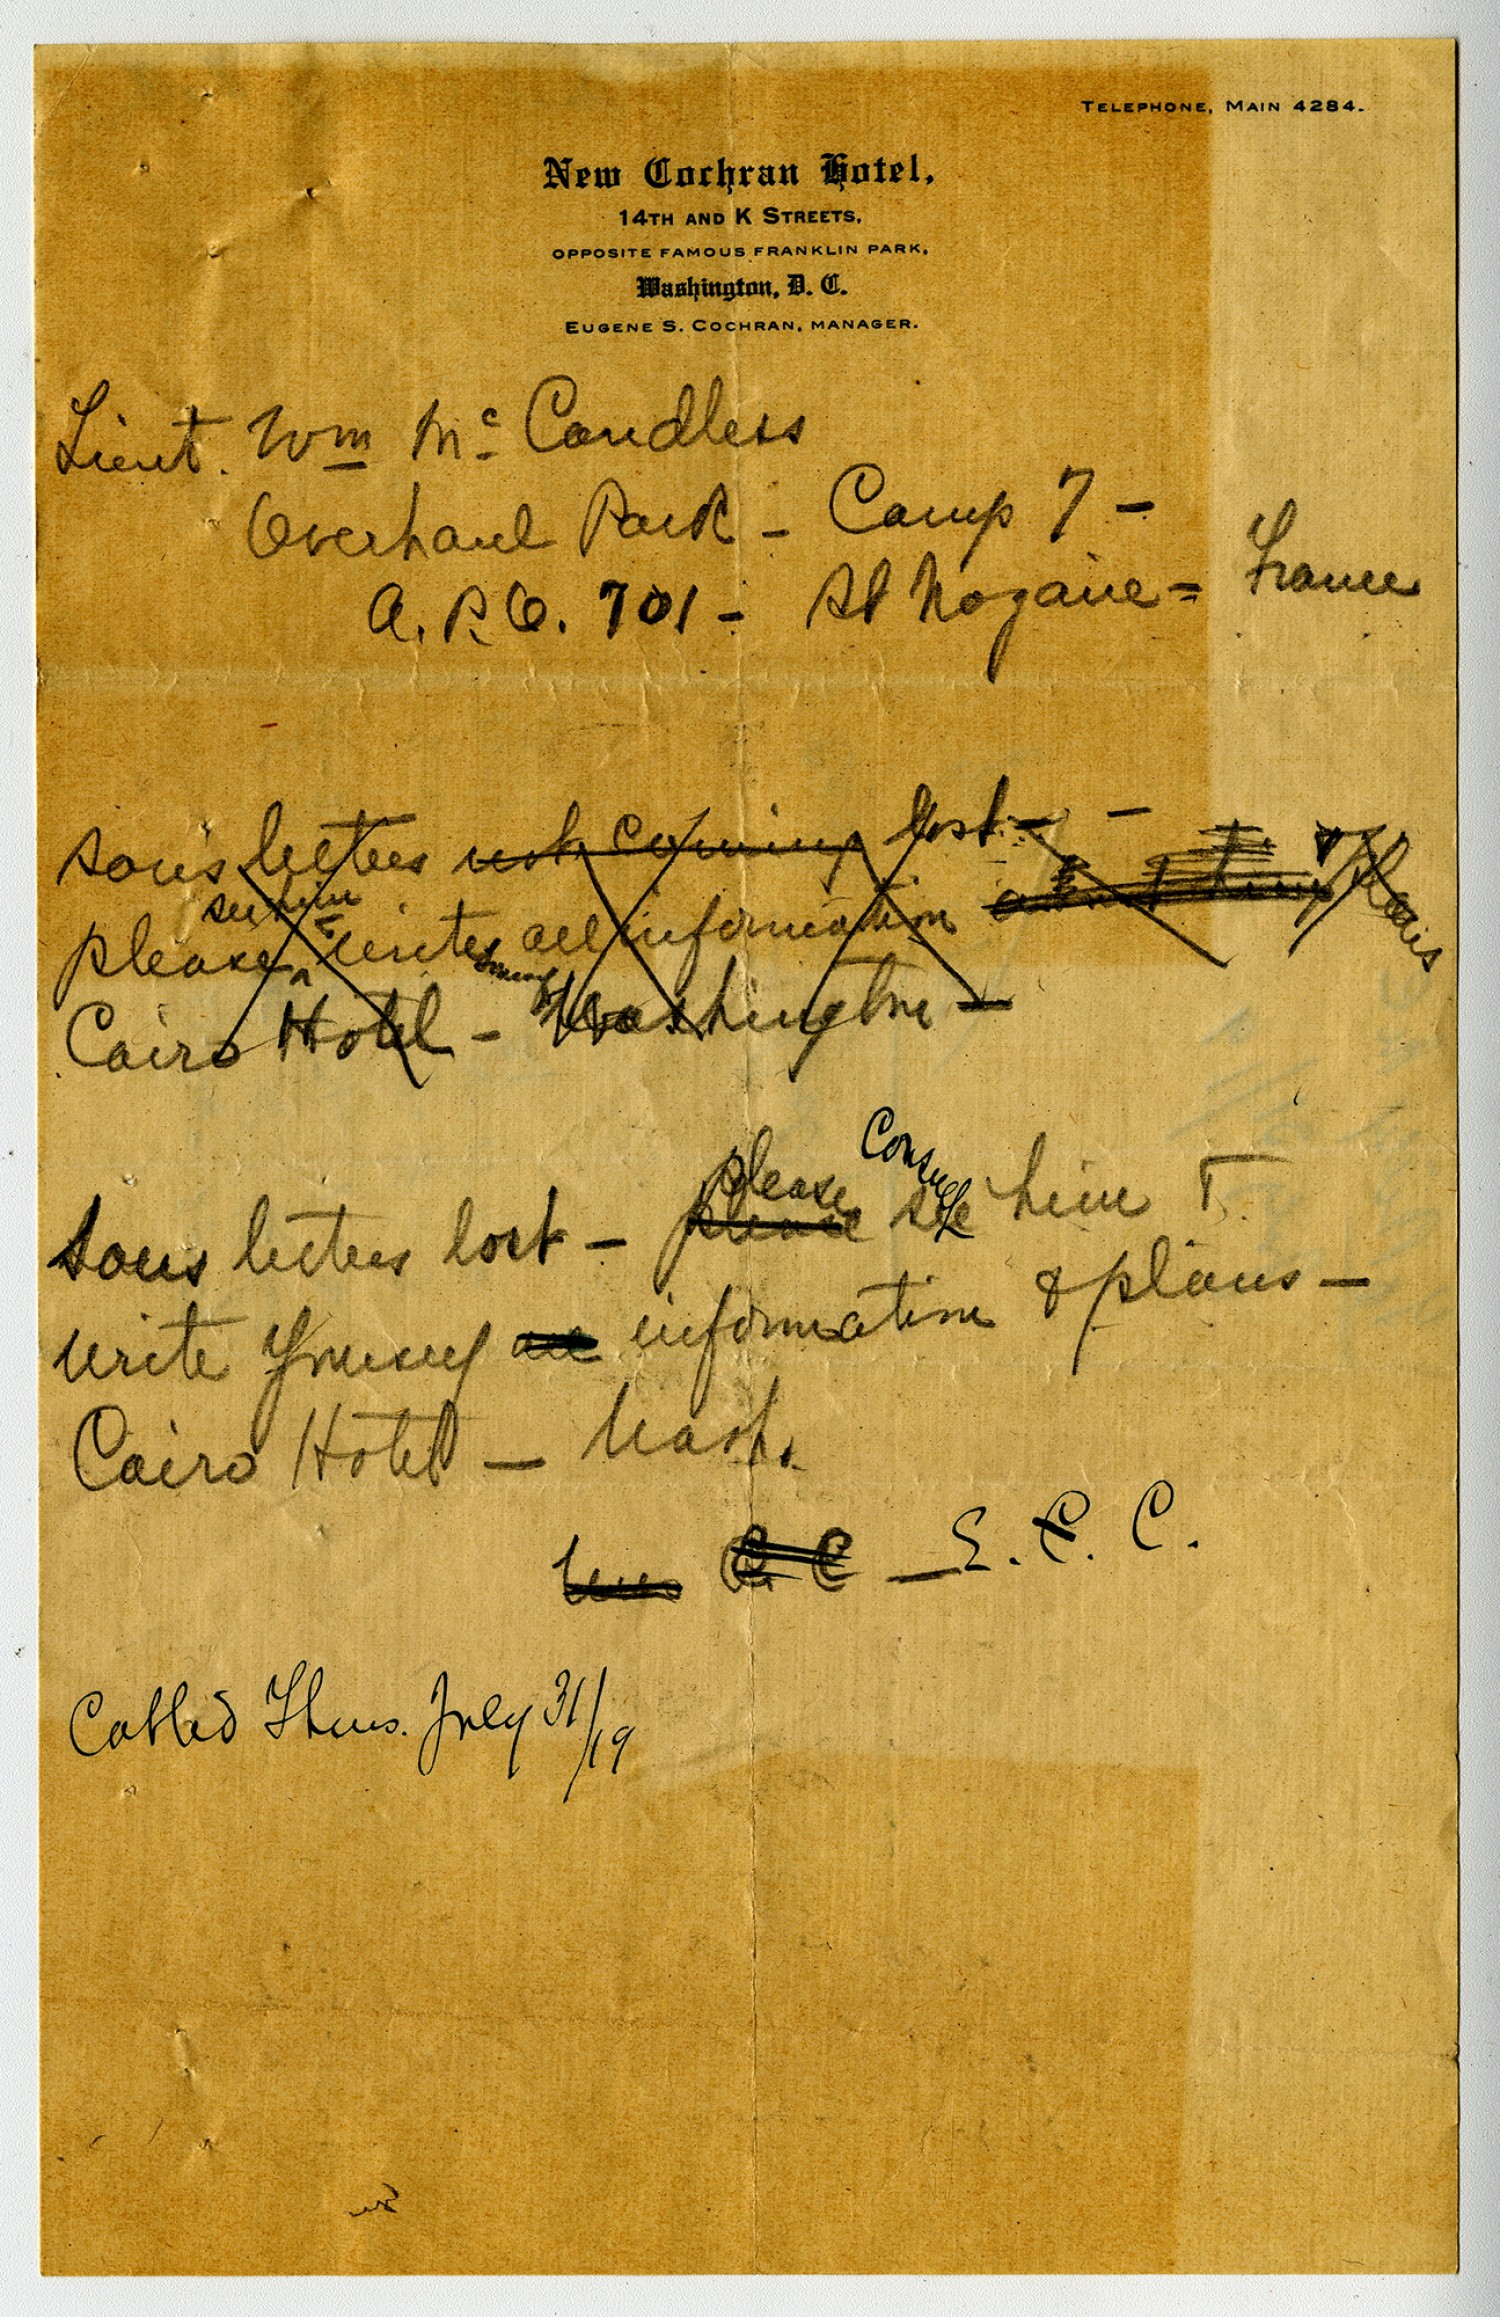 TELEPHONE, MAIN 4284.
New Cochran Hotel,
14TH AND K STREETS,
OPPOSITE FAMOUS FRANKLIN PARK,
Washington, D. C.
EUGENE S. COCHRAN, MANAGER.
Lieut. Wm Mc Candless
Overhaul Park - Camp 7 -
A. P. O. 701 - St Nazaire = France
Sons letters not coming lost - -
see him &
please ^ write all information & plans
Cairo Hotel - Washington -
please Consult
Sons letters lost - please see him &
write Youney all information & plans -
Cairo Hotel - Wash.
C C - E. C. C.
Cabled Thurs. July 31/19